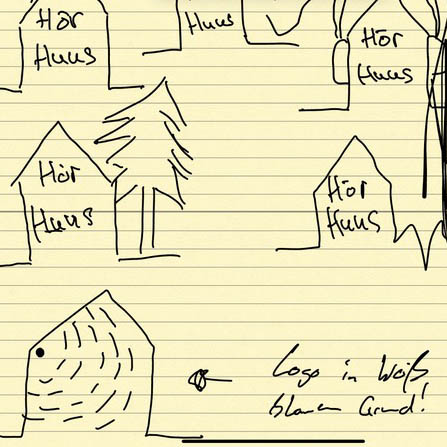 Hör
Huus
Huus
Hör
Huus
Hör
Huus
Hör
Huus
Logo in Weiß
blauen Grund!